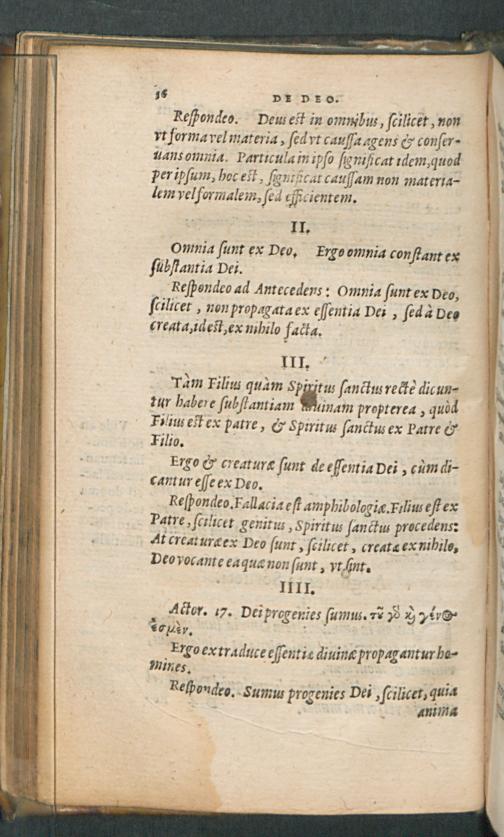 36 DE DEO.
Respondeo. Deus est in omnibus, scilicet, non
vt forma vel materia, sed vt caussa agens & conser-
uans omnia. Particula in ipso significat idem, quod
per ipsum, hoc est, significat caussam non materia-
lem vel formalem, sed efficientem.
II.
Omnia sunt ex Deo. Ergo omnia constant ex
substantia Dei.
Respondeo ad Antecedens: Omnia sunt ex Deo,
scilicet, non propagata ex essentia Dei, sed à Deo
creata, id est, ex nihilo facta.
III.
Tàm Filius quàm Spiritus sanctus rectè dicun-
tur habere substantiam diuinam propterea, quòd
Filius est ex patre, & Spiritus sanctus ex Patre &
Filio.
Ergo & creaturæ sunt de essentia Dei, cùm di-
cantur esse ex Deo.
Respondeo. Fallacia est amphibologiæ. Filius est ex
Patre, scilicet genitus, Spiritus sanctus procedens:
At creaturæ ex Deo sunt, scilicet, creatæ ex nihilo,
Deo vocante ea quæ non sunt, vt sint.
IIII.
Actor. 17. Dei progenies sumus. τοῦ γὸ κὶ γένος
ἐσμὲν.
Ergo ex traduce essentiæ diuinæ propagantur ho-
mines.
Respondeo. Sumus progenies Dei, scilicet, quia
anima